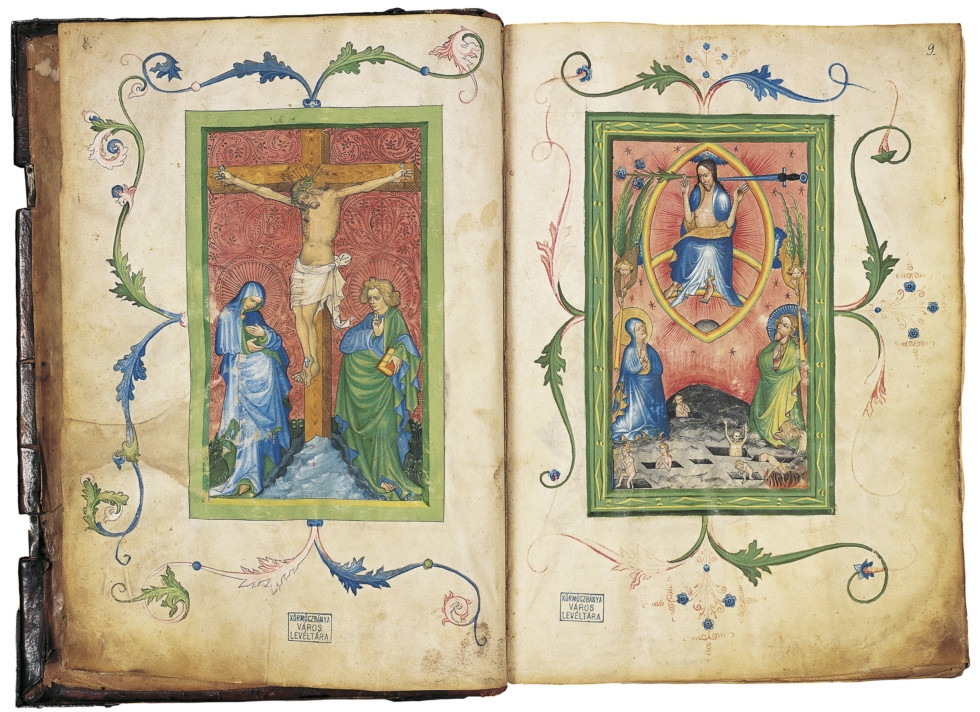 8.
9.
KÖRMÖCZBÁNYA
VÁROS
LEVÉLTÁRA
KÖRMÖCZBÁNYA
VÁROS
LEVÉLTÁRA